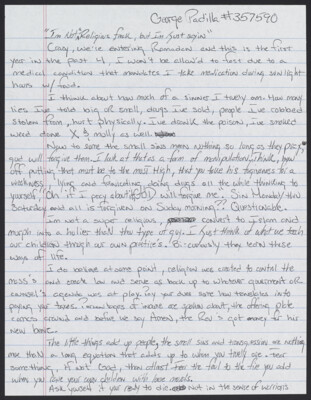 George Padilla #357590
"I'm Not Religious fawk, but I'm just sayin"
Crazy, we're entering Ramadan and this is the first
year in the past 4, I won't be allow'd to fast due to a
medical condition that mandates I take medication during sun light
hours w/ food.
I think about how much of a sinner I truly am. How many
lies I've told big or small, drugs I've sold, people I've robbed
stolen from, hurt physically. I've drank the poison, I've smoked
weed done X & molly as well.
Now to some the small sins mean nothing so long as they pray,
god will forgive them. I look at that as a form of manipulation. Think, your
off putting that must be to the most High, that you take his forgiveness
weakness, lying and fornicating, doing drugs all the while thinking to
yourself, "Oh if I pray about it GOD will forgive me". Sin Monday thru
Saturday and all is forgiven on Sunday morning?? Questionable.
I'm not a super religious, convert to Islam and
morph into a holier than thou type of guy. I just think of what we teach
our children through our own practice's. Be curiously they learn these
ways of life.
I do believe at some point, religion was created to control the
mass's and enact law and serve as back up to whatever government or
council's agenda was at play. Any year over some how translates into
paying your taxes. percentages of income are spoken about, the offering plate
comes around and before we say Amen, the Rev's got money for his
new
The little things add up people, the small sins and transgressions are nothing
more than a long equation that adds up to when you truly age. Fear
something, if not God, then atleast fear the tail to the lie you add
when you have your own children with base morals.
Ask yourself if your ready to die. Not in the sense of warriors